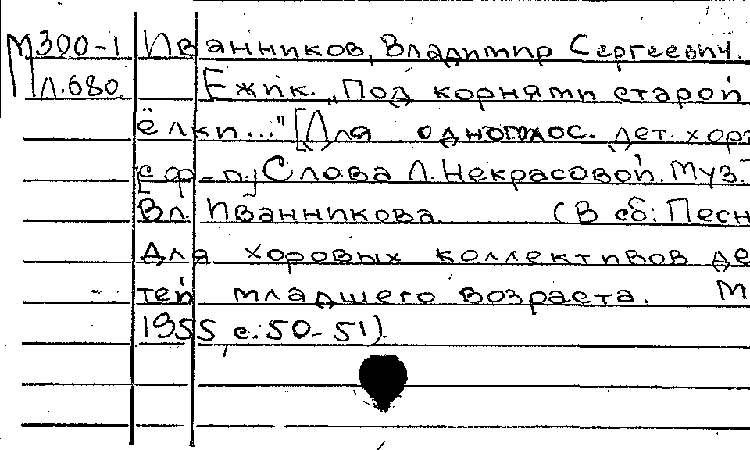 М300-1 Иванников, Владимир Сергеевич.
Л.680 Ежик. „Под корнями старой
ёлки..." [Для одноголос. дет. хора
с ф-п.] Слова Л. Некрасовой. Муз.
Вл. Иванникова. (В сб: Песн
для хоровых коллективов де-
тей младшего возраста. М
1955 с. 50-51)